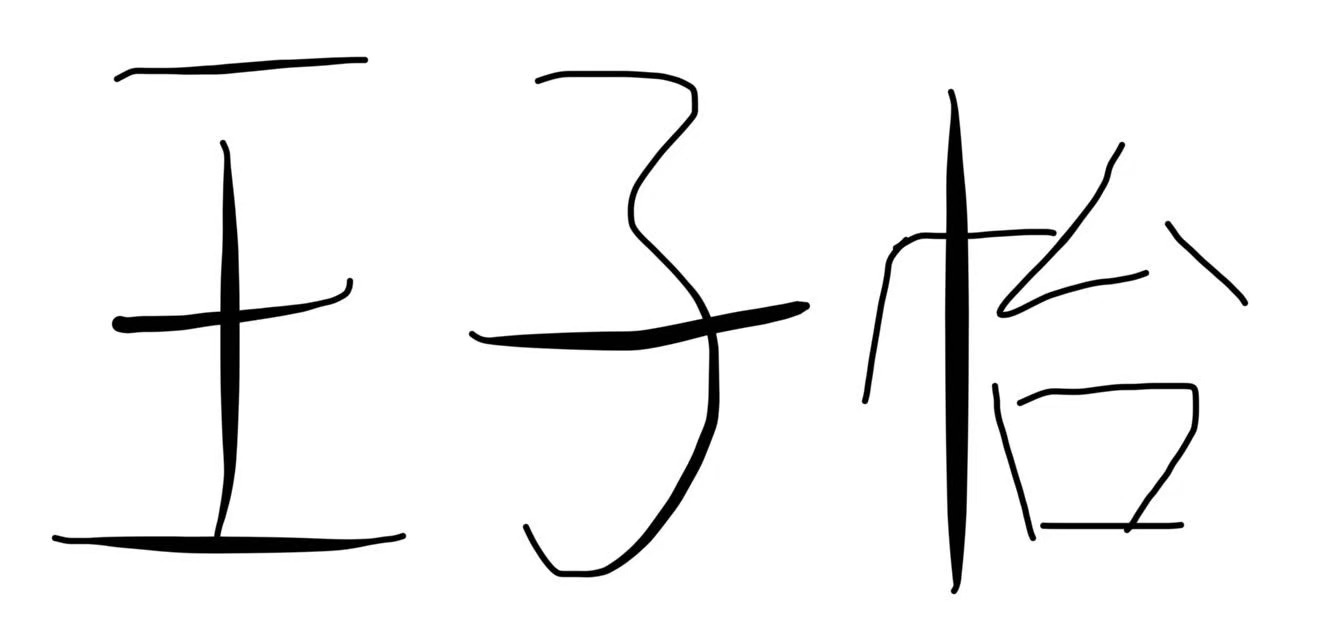 王子怡